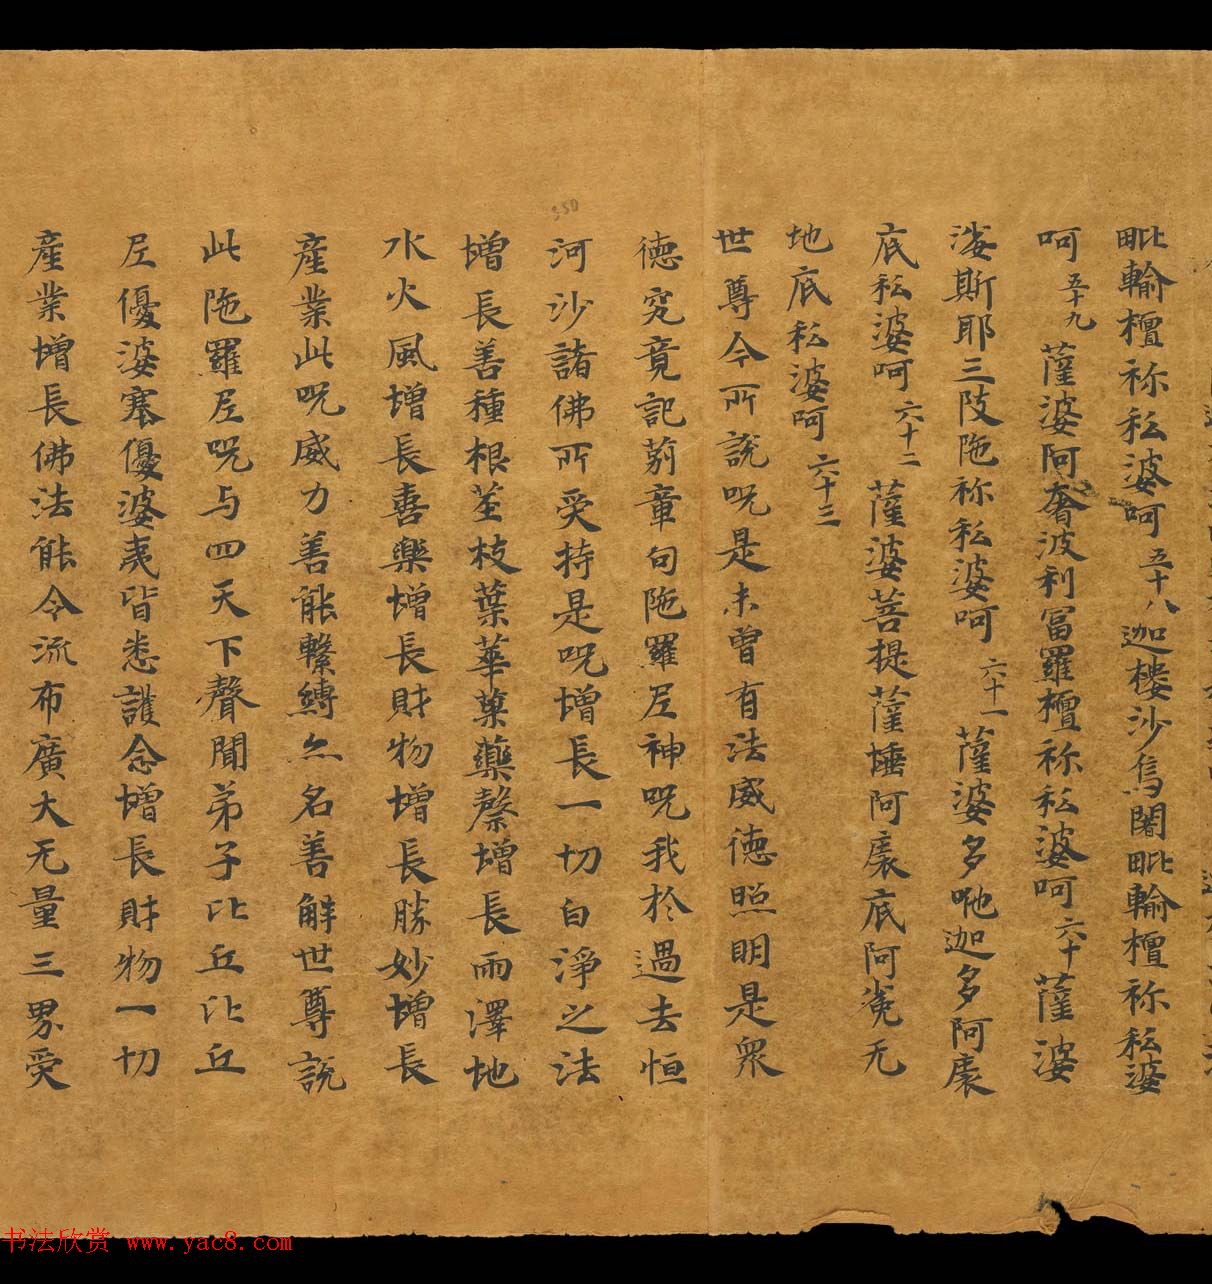 毗輸檀祢私婆呵五十八迦樓沙烏闍毗輸檀祢私婆
呵五十九薩婆阿奢波利冨羅檀祢私婆呵六十薩婆
娑斯耶三陂陁祢私婆呵六十一薩婆多哋迦多阿
底私婆呵六十二薩婆菩提薩埵阿底阿无
地底私婆呵六十三
世尊今所說呪是未曾有法威德照明是衆
德究竟記莂章句陁羅尼神呪我於過去恒
河沙諸佛所受持是呪增長一切白淨之法
增長善種根莖枝葉華菓藥增長雨澤地
水火風增長喜樂增長財物增長勝妙增長
產業此呪威力善能繫縛亦名善解世尊説
此陁羅尼呪与四天下聲聞弟子比丘比丘
尼優婆塞優婆夷皆悉護念增長財物一切
產業增長佛法能令流布廣大无量三界受
书法欣赏 www.yac8.com